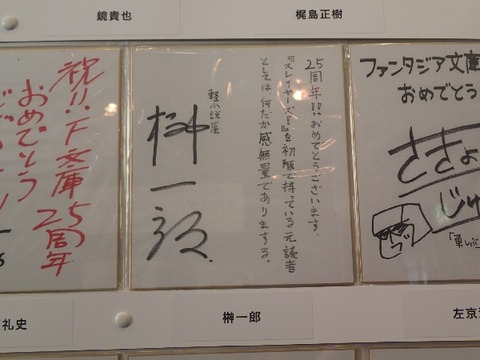 鏡貴也
梶島正樹
祝!!F文庫
25周年
おめでとう
25周年!!おめでとうございます。
『スレイヤーズ!』を初版で持っている元読者
としては何だか感無量でありまする。
軽小説屋
榊一郎
ファンタジア文庫
おめでとう
ささょ
じゅ
礼史
榊一郎
左京